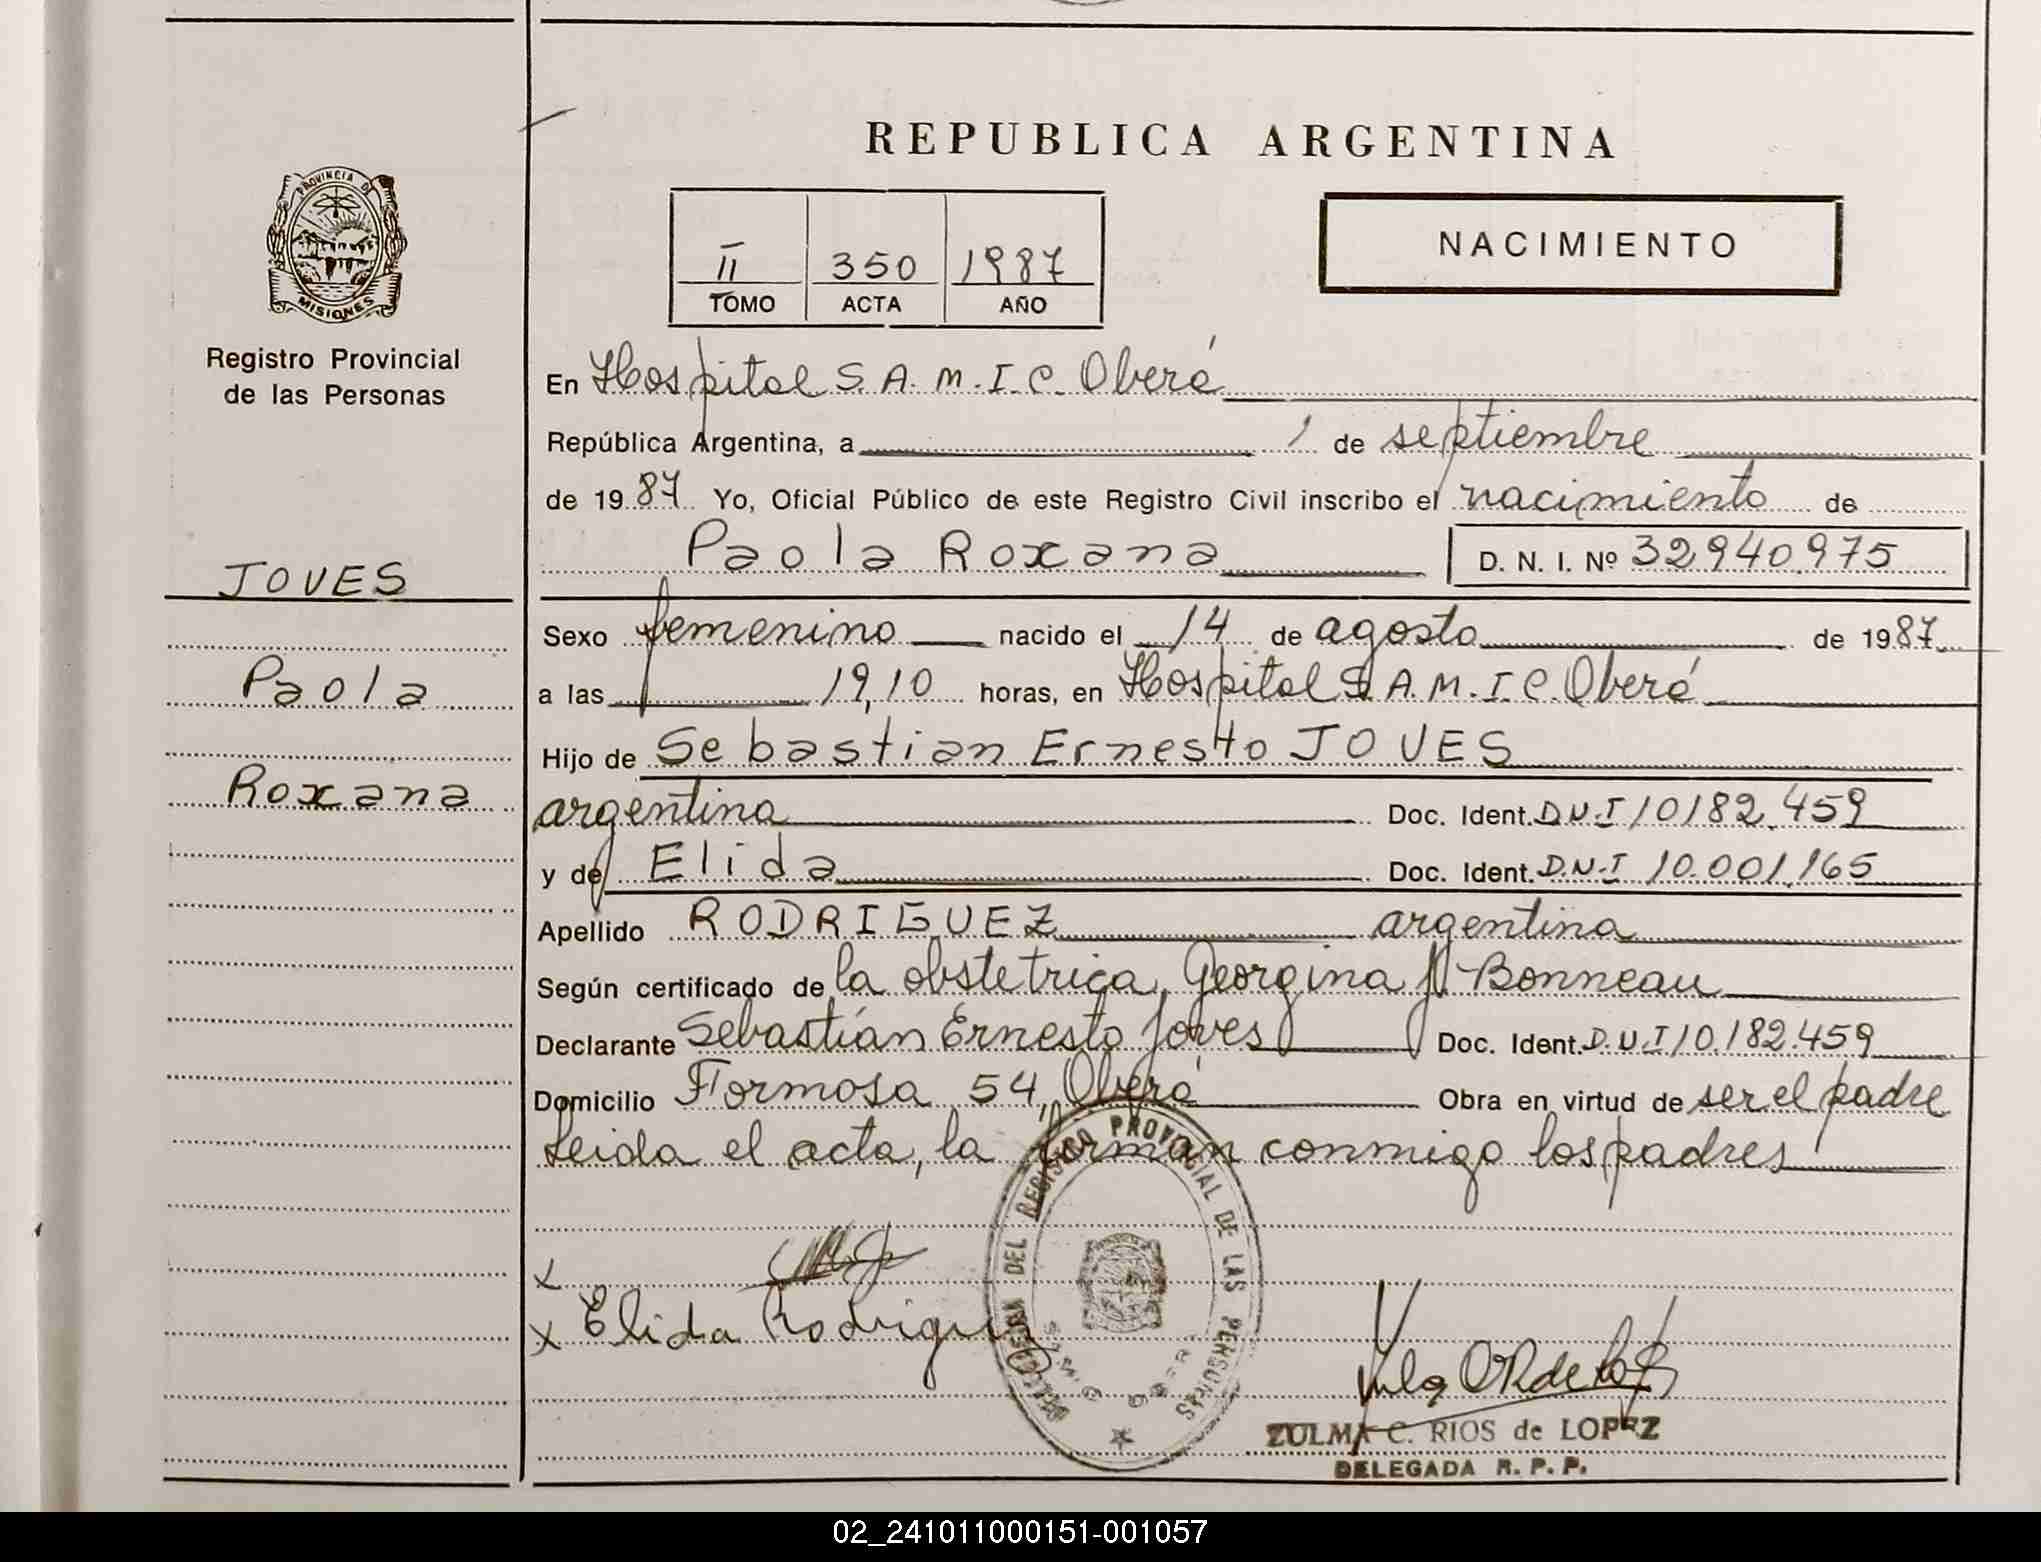 REPUBLICA ARGENTINA
PROVINCIA DE
MISIONES
Registro Provincial
de las Personas
II 350 1987
TOMO ACTA AÑO
NACIMIENTO
En Hospital S.A.M.I.C. Oberá
República Argentina, a 1 de septiembre
de 1987 Yo, Oficial Público de este Registro Civil inscribo el nacimiento de
Paola Roxana D. N. I. Nº 32940975
JOVES
Paola
Roxana
Sexo femenino nacido el 14 de agosto de 1987
a las 19,10 horas, en Hospital S.A.M.I.C. Oberá
Hijo de Sebastian Ernesto JOVES
argentina Doc. Ident. D.N.I 10182.459
y de Elida Doc. Ident. D.N.I 10.001.165
Apellido RODRIGUEZ argentina
Según certificado de la obstetrica, Georgina Bonneau
Declarante Sebastián Ernesto Joves Doc. Ident. D.N.I 10.182.459
Domicilio Formosa 54, Oberá Obra en virtud de ser el padre
Leida el acta, la firman conmigo los padres
x
x Elida Rodriguez
DELEGACION DEL REGISTRO PROVINCIAL DE LAS PERSONAS
ZULMA C. RIOS de LOPEZ
DELEGADA R. P. P.
02_241011000151-001057